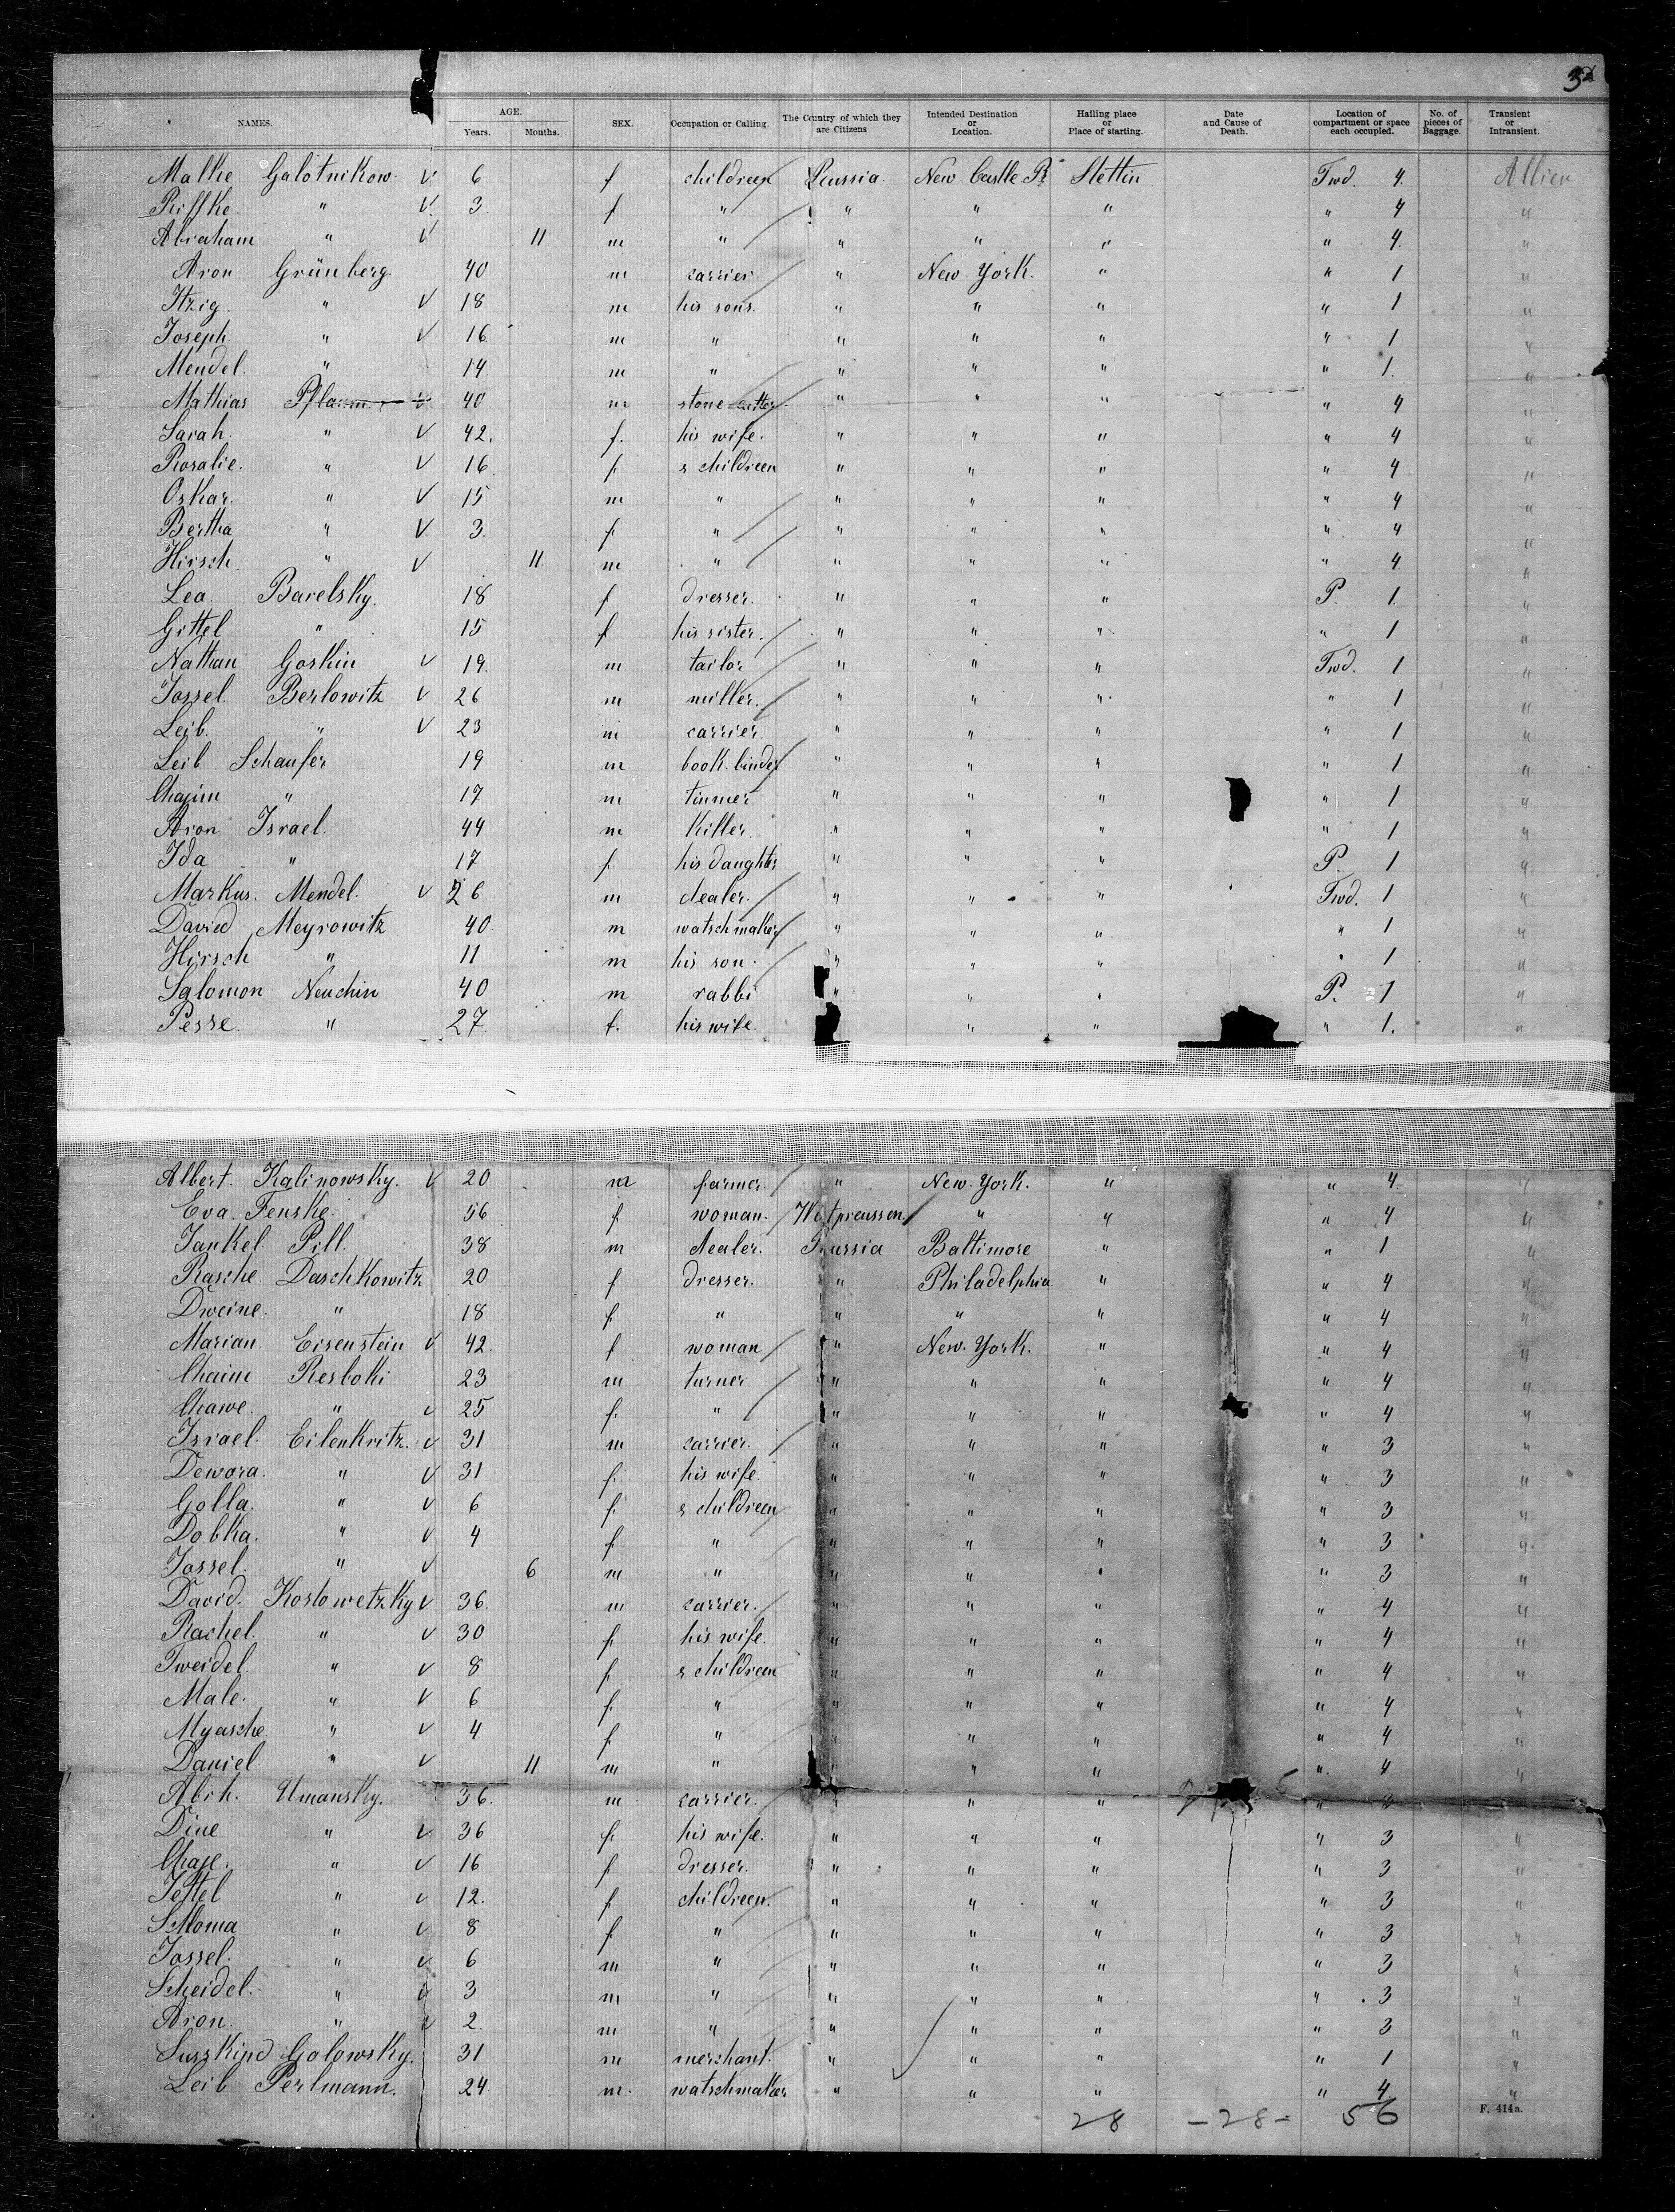 3d
NAMES. AGE. Years. Months. SEX. Occupation or Calling. The Country of which they are Citizens Intended Destination or Location. Hailing place or Place of starting. Date and Cause of Death. Location of compartment or space each occupied. No. of pieces of Baggage. Transient or Intransient.
Malke Galotnikow. V 6 f children Russia. New Castle Stettin Twd. 4.
Riffke. " V. 3. f " " " " " 4 "
Abraham " V 11 m " " " " " 4. "
Aron Grünberg. 40 m carrier. " New York. " " 1 "
Itzig. " V 18 m his sons. " " " " 1 "
Joseph. " V 16 m " " " " " 1 "
Mendel. " 14. m " " " " " 1. "
Mathias Pflaum. V 40 m stone-cutter " " " " 4 "
Sarah. " V 42. f. his wife. " " " " 4 "
Rosalie. " V 16. f s children " " " " 4 "
Oskar. " V 15 m " " " " " 4 "
Bertha " V 3. f " " " " " 4 "
Hirsch " V 11. m " " " " " 4 "
Lea Barelsky. 18 f dresser. " " " P. 1. "
Gittel " 15 f his sister. " " " " 1 "
Nathan Goskin V 19. m tailor " " " Twd. 1 "
Jossel. Berlowitz V 26 m miller. " " " " 1 "
Leib. " V 23 m carrier. " " " " 1 "
Leib Schaufer 19 m book-binder " " " " 1 "
Chajim " 17 m tinmer " " " " 1 "
Aron Israel. 44 m Killer. " " " " 1 "
Ida " 17 f. his daughter " " " P. 1 "
Markus. Mendel. V 26 m dealer. " " " Twd. 1 "
David Meyrowitz 40. m watschmaker " " " " 1 "
Hirsch " 11 m his son. " " " " 1 "
Salomon Neuchin 40 m rabbi " " " P. 1 "
Pesse. " 27. f. his wife. " " " 1. "
Albert. Kalinowsky. V 20 m farmer. " New York. " " 4. "
Eva. Fenske. 56 f woman. Westpreussen " " " 4 "
Jankel Pill. 38 m dealer. Russia Baltimore " " 1 "
Rasche Daschkowitz 20 f dresser. " Philadelphia " " 4 "
Dweine. " 18 f " " " " " 4 "
Marian. Eisenstein V 42. f woman " New York. " " 4 "
Chaim Resboki 23 m turner " " " " 4 "
Chawe. " V 25 f. " " " " " 4 "
Israel. Eilenkritz. V 31 m carrier. " " " " 3 "
Dewora. " V 31 f. his wife. " " " " 3 "
Golla. " V 6 f. s children " " " " 3 "
Dobka. " V 4 f " " " " " 3 "
Jossel. " V 6 m " " " " " 3 "
David. Koslowetzky V 36. m carrier. " " " " 4 "
Rachel. " V 30 f his wife. " " " " 4 "
Tweidel. " V 8 f s children " " " " 4 "
Male. " V 6 f. " " " " " 4 "
Myasche. " V 4 f " " " " " 4 "
Daniel " V 11 m " " " " " 4 "
Abrh. Umansky. 36. m carrier. " " " " 3 "
Dine " V 36 f. his wife. " " " " 3 "
Chaje. " V 16 f dresser. " " " " 3 "
Jettel " V 12. f children. " " " " 3 "
Schloma " V 8 f " " " " " 3 "
Jossel. " V 6 m " " " " " 3 "
Scheidel. " V 3 m " " " " " 3 "
Aron. " V 2. m " " " " " 3 "
Susskind Golowsky. 31 m merchant. " " " " 1 "
Leib Perlmann. 24. m. watschmaker " " " " 4. "
28 -28- 56 F. 414a.